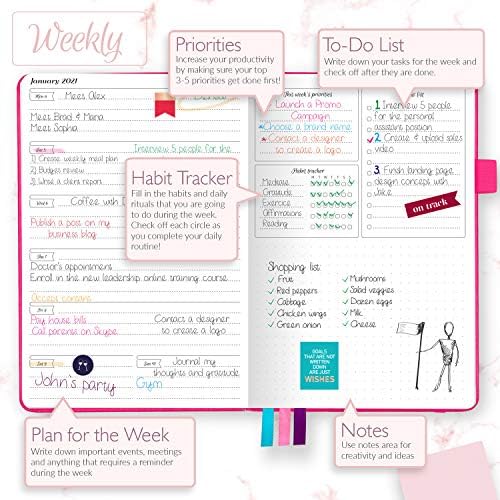 Weekly
Priorities
Increase your productivity
by making sure your top
3-5 priorities get done first!
To-Do List
Write down your tasks for the week and
check off after they are done.
January 2021
Meet Alex
Meet Brad & Maria
Meet Sophia
Interview 5 people for the
1) Create weekly meal plan
2) Budget review
3) Write a client report
Coffee with D
Publish a post on my
business blog
Doctor's appointment
Enroll in the new leadership online training course
Pay house bills
Call parents on Skype
Contact a designer
to create a logo
John's party
Journal my
thoughts and gratitude
Gym
Habit Tracker
Fill in the habits and daily
rituals that you are going
to do during the week.
Check off each circle as
you complete your daily
routine!
This week's priorities
Launch a Promo
Campaign
Choose a brand name
Contact a designer
to create a logo
Habit tracker
Meditate
Gratitude
Exercise
Affirmations
Reading
1 Interview 5 people
for the personal
assistant position
2 Create & upload sales
video
3 Finish landing page
design concepts with
on track
Shopping list
Fruit
Red peppers
Cabbage
Chicken wings
Green onion
Mushrooms
Salad veggies
Dozen eggs
Milk
Cheese
GOALS
THAT ARE NOT
WRITTEN DOWN
ARE JUST
WISHES
Plan for the Week
Write down important events, meetings
and anything that requires a reminder
during the week
Notes
Use notes area for
creativity and ideas